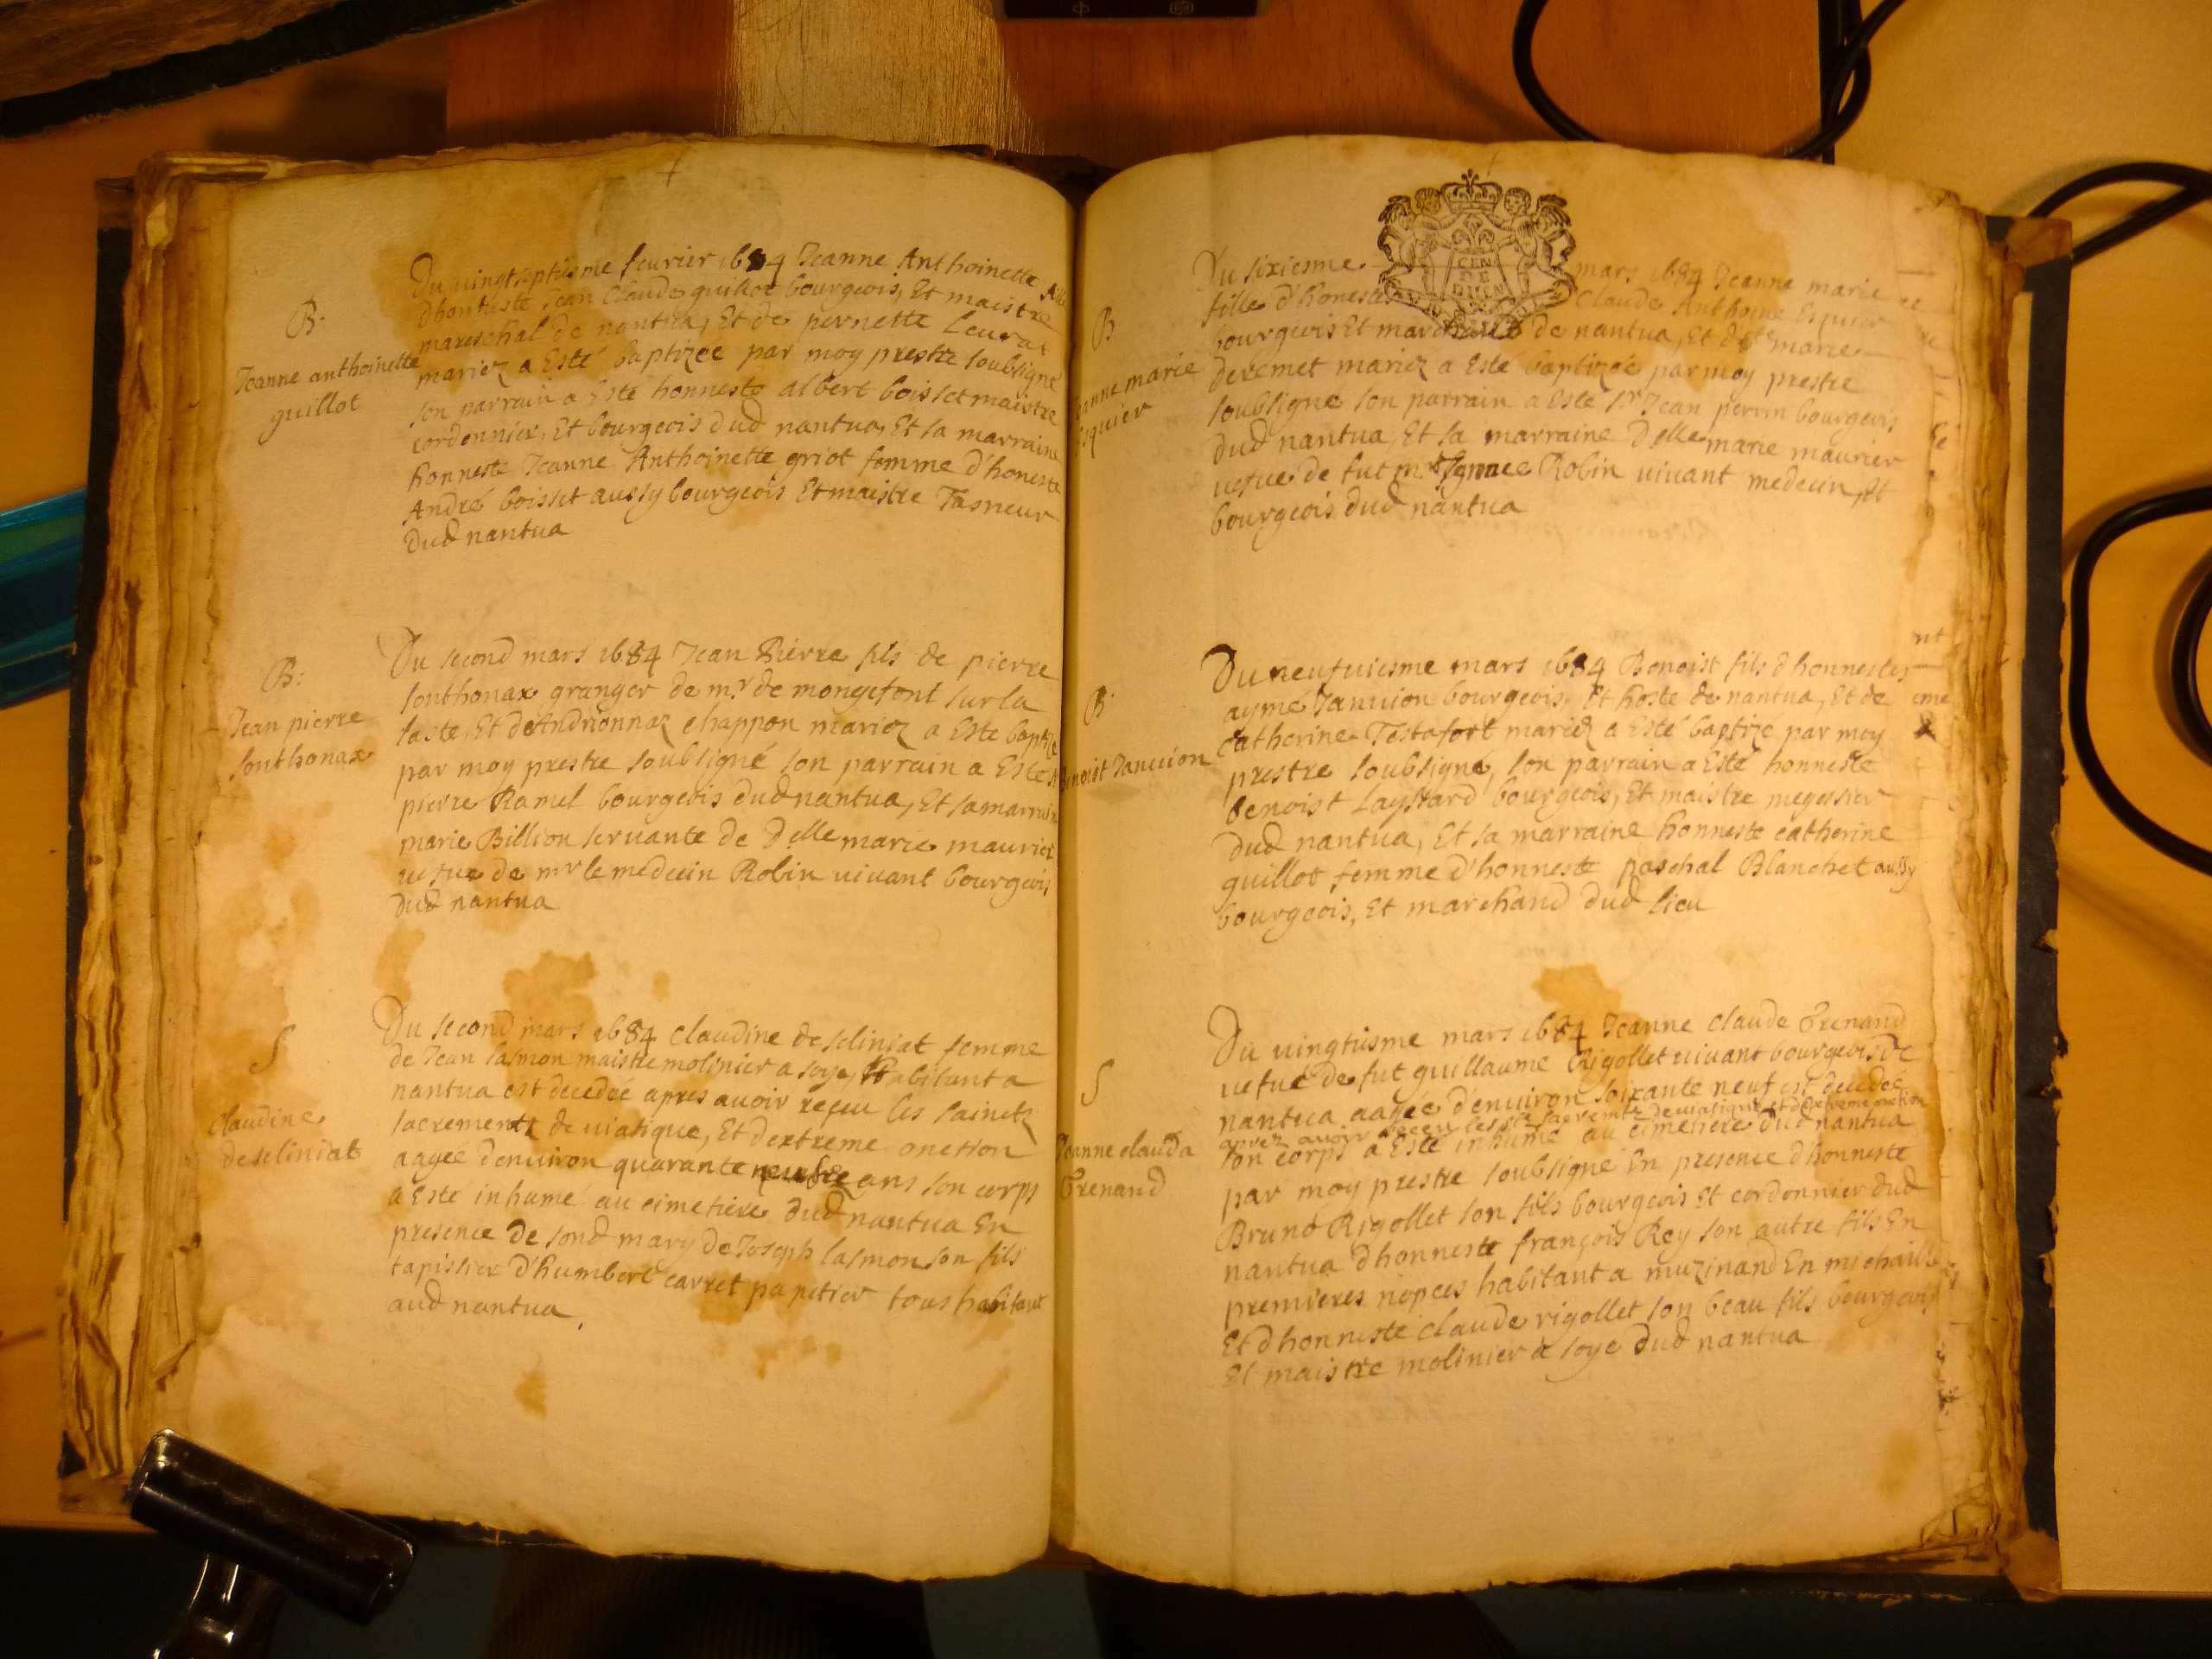 B.
Jeanne anthoinette
guillot
Du vingtseptiesme feurier 1684 Jeanne Anthoinette fille
dhonneste Jean Claude guillot bourgeois, Et maistre
mareschal de nantua, Et de pernette Leurat
mariez a Esté baptizée par moy prestre soubsigné
son parrain a Esté honneste albert boisset maistre
cordonnier, Et bourgeois dud nantua, Et sa marraine
honneste Jeanne Anthoinette griot femme d'honeste
André boisset aussy bourgeois Et maistre Tasneur
dud nantua
B:
Jean pierre
sonthonax
Du second mars 1684 Jean Pierre fils de pierre
sonthonax granger de mr de mongefont sur la
laste, Et de Andrionnaz chappon mariez a Este baptizé
par moy prestre soubsigné son parrain a Esté sr
pierre Ramel bourgeois dud nantua, Et sa marraine
marie Billion servante de delle marie maurier
vefue de mr le medecin Robin vivant bourgeois
dud nantua
S
claudine
de seliniat
Du second mars 1684 claudine de seliniat femme
de Jean lasmon maistre molinier a soye, habitant a
nantua est decedée apres auoir reçeu les saincts
sacrements de viatique, Et dextreme onction
aagée denuiron quarante ans son corps
a Esté inhumé au cimetiere dud nantua En
presence de sond mary de Joseph lasmon son fils
tapissier d'humbert carret papetier tous habitant
aud nantua.
GEN
DE
B
Jeanne marie
Esquier
Du sixiesme mars 1684 Jeanne marie
fille d'honeste Claude Anthoine Esquier
bourgeois Et marchand de nantua, Et dhte marie
deremet mariez a Esté baptizée par moy prestre
soubsigné son parrain a Esté sr Jean perrin bourgeois
dud nantua, Et sa marraine delle marie maurier
vefue de fut mr Ignace Robin vivant medecin, Et
bourgeois dud nantua
B
Benoist Januion
Du neufuiesme mars 1684 Benoist fils dhonnestes
aymé Januion bourgeois, Et hoste de nantua, Et de
Catherine Testafort mariez a Esté baptizé par moy
prestre soubsigné, son parrain a Esté honneste
benoist Layssard bourgeois, Et maistre megessier
dud nantua, Et sa marraine honneste catherine
guillot femme d'honneste paschal Blanchet aussy
bourgeois, Et marchand dud lieu
S
Jeanne clauda
Grenand
Du vingtiesme mars 1684 Jeanne claude Grenand
vefue de fut guillaume Rigollet vivant bourgeois de
nantua aagée denuiron soixante neuf est decedée
aprez auoir reçeu les sts sacremts de viatique et dextreme onction
son corps a Esté inhumé au cimetiere dud nantua
par moy prestre soubsigné En presence dhonneste
Bruno Rigollet son fils bourgeois Et cordonnier dud
nantua dhonneste françois Rey son autre fils En
premieres nopces habitant a muzinand En michaille
Et dhonneste claude rigollet son beau fils bourgeois
Et maistre molinier a soye dud nantua